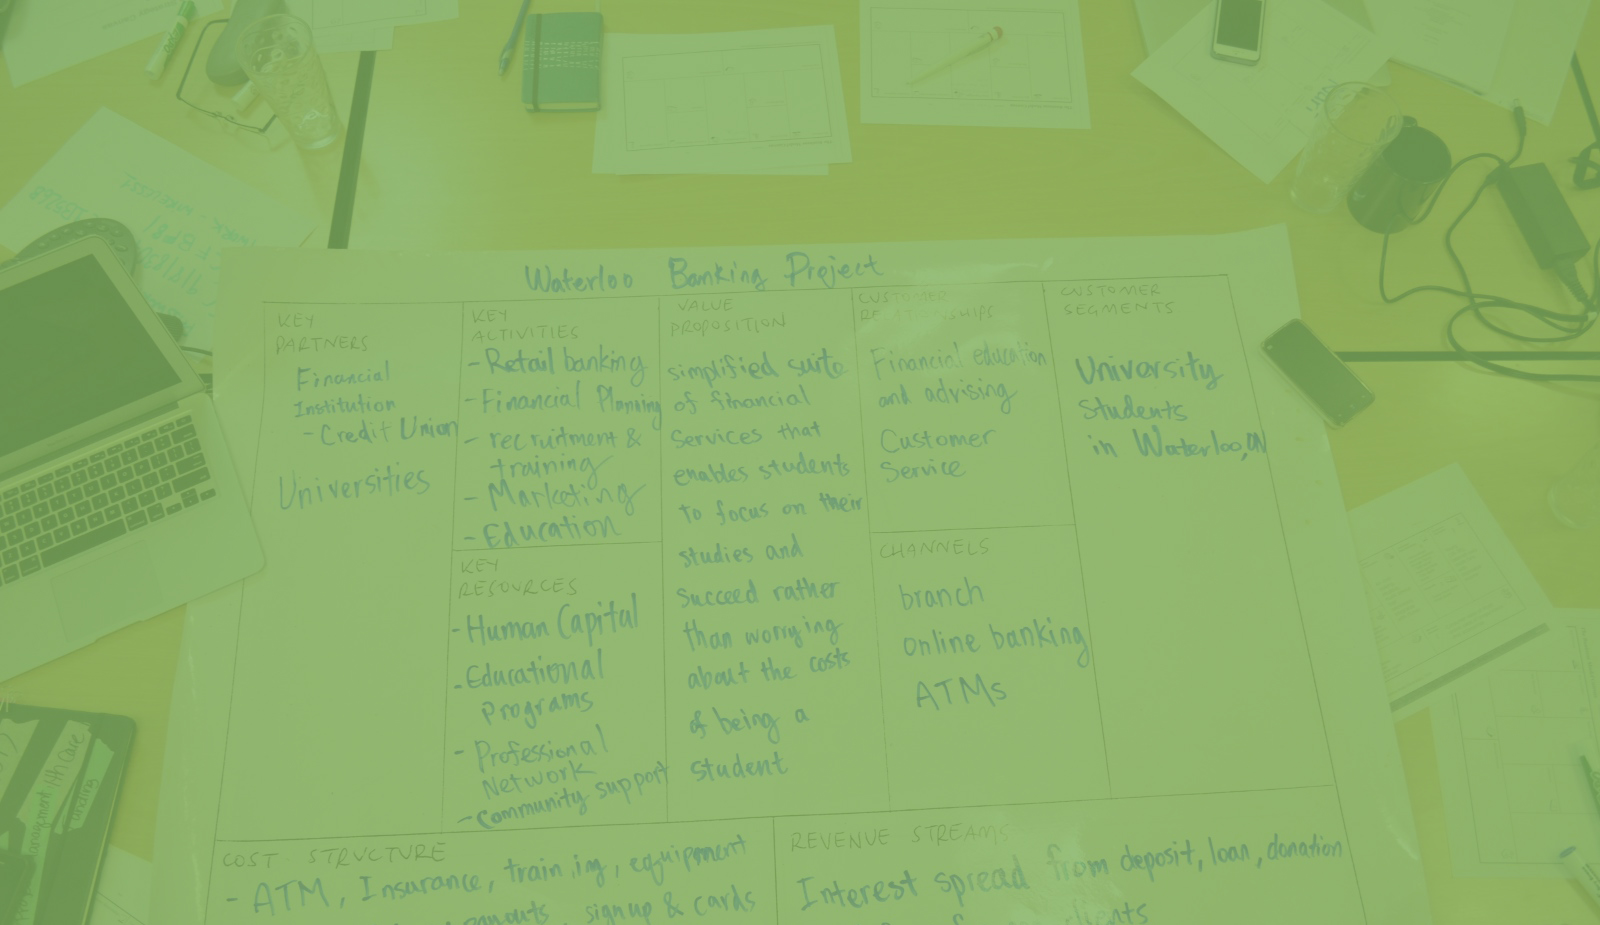 Waterloo Banking Project
KEY
PARTNERS
Financial
Institution
- Credit Union
Universities
KEY
ACTIVITIES
- Retail banking
- Financial Planning
- recruitment &
training
- Marketing
- Education
KEY
RESOURCES
- Human Capital
- Educational
programs
- Professional
Network
- Community support
VALUE
PROPOSITION
simplified suite
of financial
services that
enables students
to focus on their
studies and
succeed rather
than worrying
about the costs
of being a
student
CUSTOMER
RELATIONSHIPS
Financial education
and advising
Customer
Service
CHANNELS
branch
online banking
ATMs
CUSTOMER
SEGMENTS
University
Students
in Waterloo, ON
COST STRUCTURE
- ATM, Insurance, training, equipment
signup & cards
REVENUE STREAMS
Interest spread from deposit, loan, donation
clients